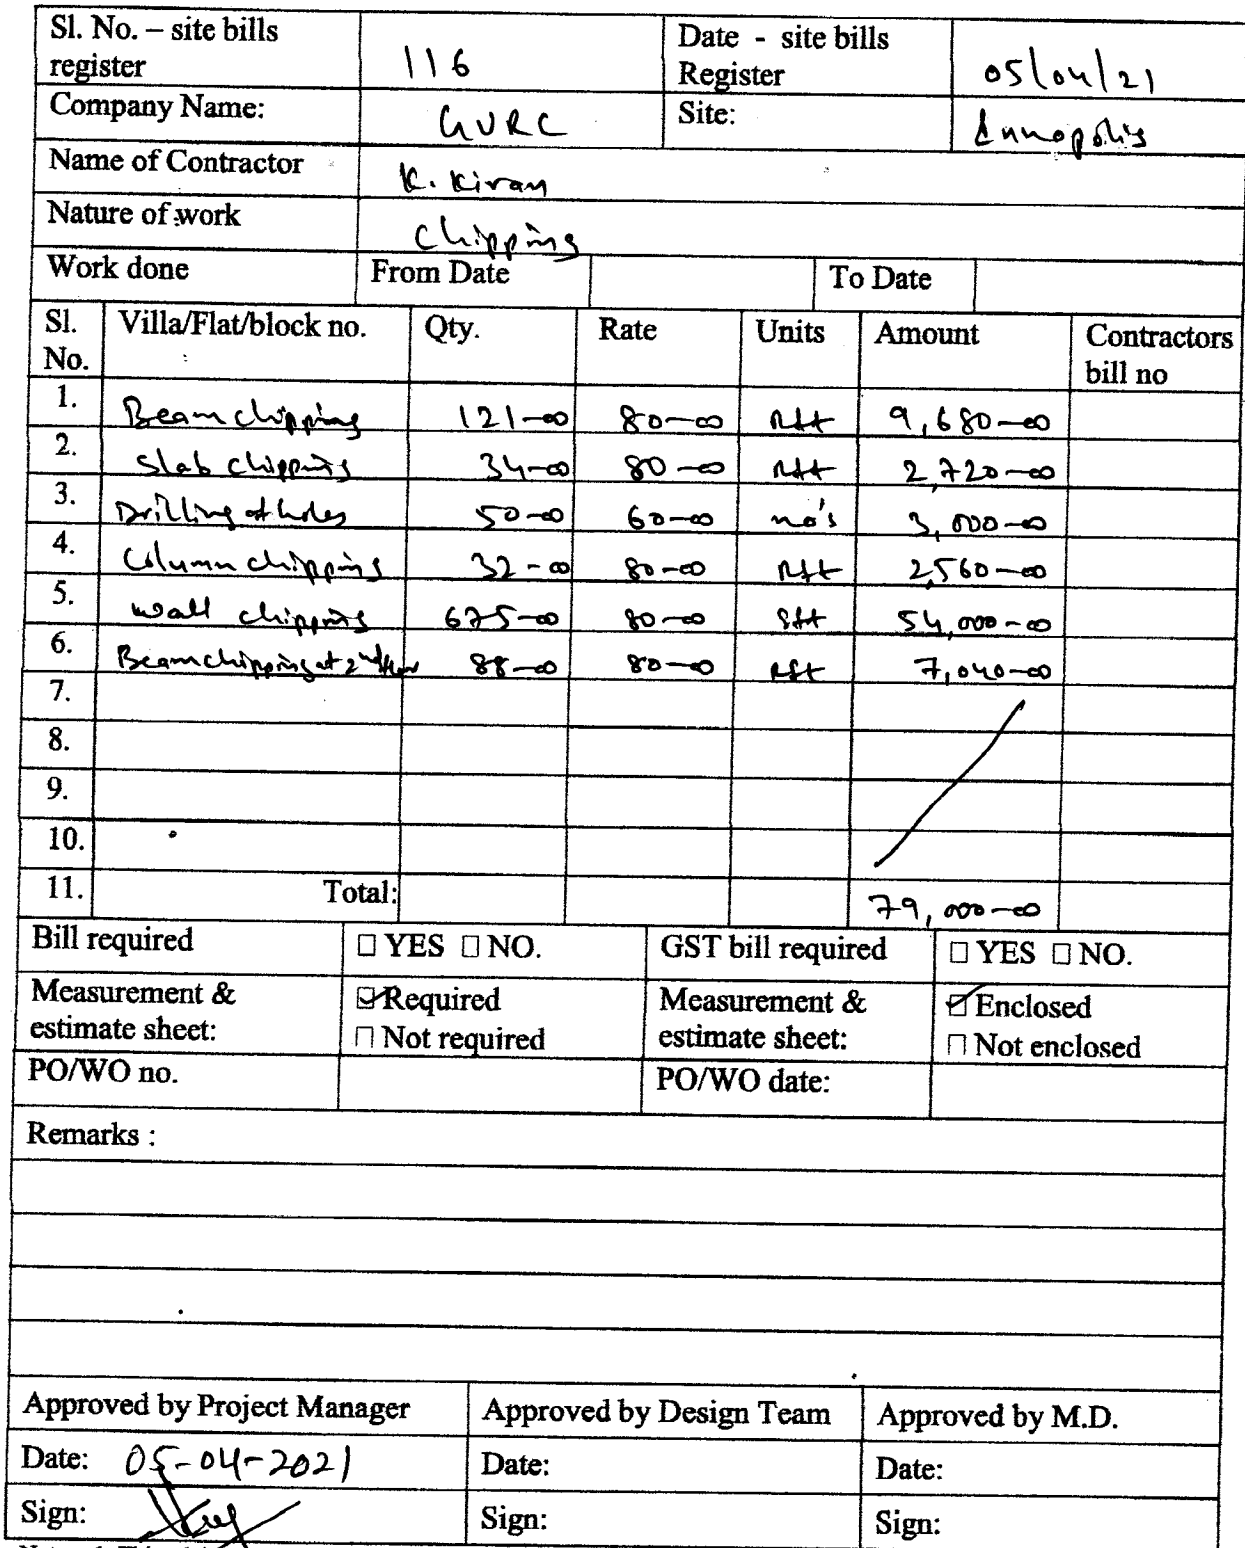 Sl. No. – site bills register 116 Date - site bills Register 05/04/21
Company Name: GVRC Site: Innopolis
Name of Contractor K. Kiran
Nature of work Chipping
Work done From Date To Date
Sl. No. Villa/Flat/block no. Qty. Rate Units Amount Contractors bill no
1. Beam chipping 121-00 80-00 Rft 9,680-00
2. Slab chipping 34-00 80-00 Rft 2,720-00
3. Drilling of holes 50-00 60-00 no's 3,000-00
4. Column chipping 32-00 80-00 Rft 2,560-00
5. Wall chipping 675-00 80-00 Sft 54,000-00
6. Beam chipping at 2nd floor 88-00 80-00 Rft 7,040-00
7.
8.
9.
10.
11. Total: 79,000-00
Bill required □ YES □ NO. GST bill required □ YES □ NO.
Measurement & estimate sheet: ☑ Required □ Not required Measurement & estimate sheet: ☑ Enclosed □ Not enclosed
PO/WO no. PO/WO date:
Remarks :
Approved by Project Manager Approved by Design Team Approved by M.D.
Date: 05-04-2021 Date: Date:
Sign: Sign: Sign: